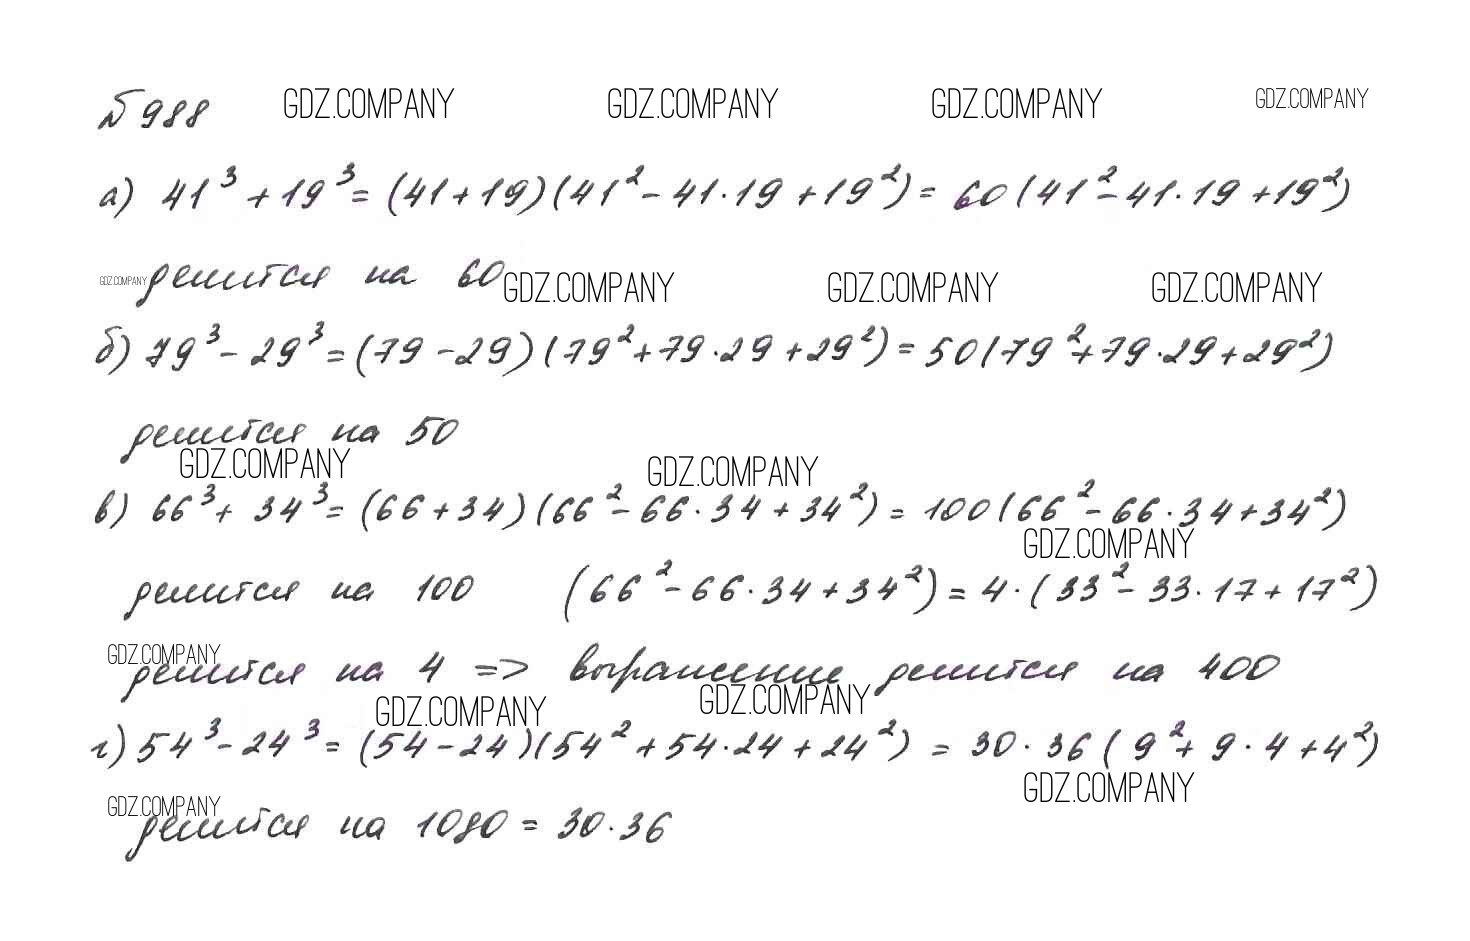 № 988 GDZ.COMPANY GDZ.COMPANY GDZ.COMPANY GDZ.COMPANY
а) 41³ + 19³ = (41 + 19)(41² - 41·19 + 19²) = 60(41² - 41·19 + 19²)
GDZ.COMPANY делится на 60 GDZ.COMPANY GDZ.COMPANY GDZ.COMPANY
б) 79³ - 29³ = (79 - 29)(79² + 79·29 + 29²) = 50(79² + 79·29 + 29²)
делится на 50
GDZ.COMPANY GDZ.COMPANY
в) 66³ + 34³ = (66 + 34)(66² - 66·34 + 34²) = 100(66² - 66·34 + 34²)
GDZ.COMPANY
делится на 100 (66² - 66·34 + 34²) = 4·(33² - 33·17 + 17²)
GDZ.COMPANY
делится на 4 => выражение делится на 400
GDZ.COMPANY GDZ.COMPANY
г) 54³ - 24³ = (54 - 24)(54² + 54·24 + 24²) = 30·36(9² + 9·4 + 4²)
GDZ.COMPANY GDZ.COMPANY
делится на 1080 = 30·36